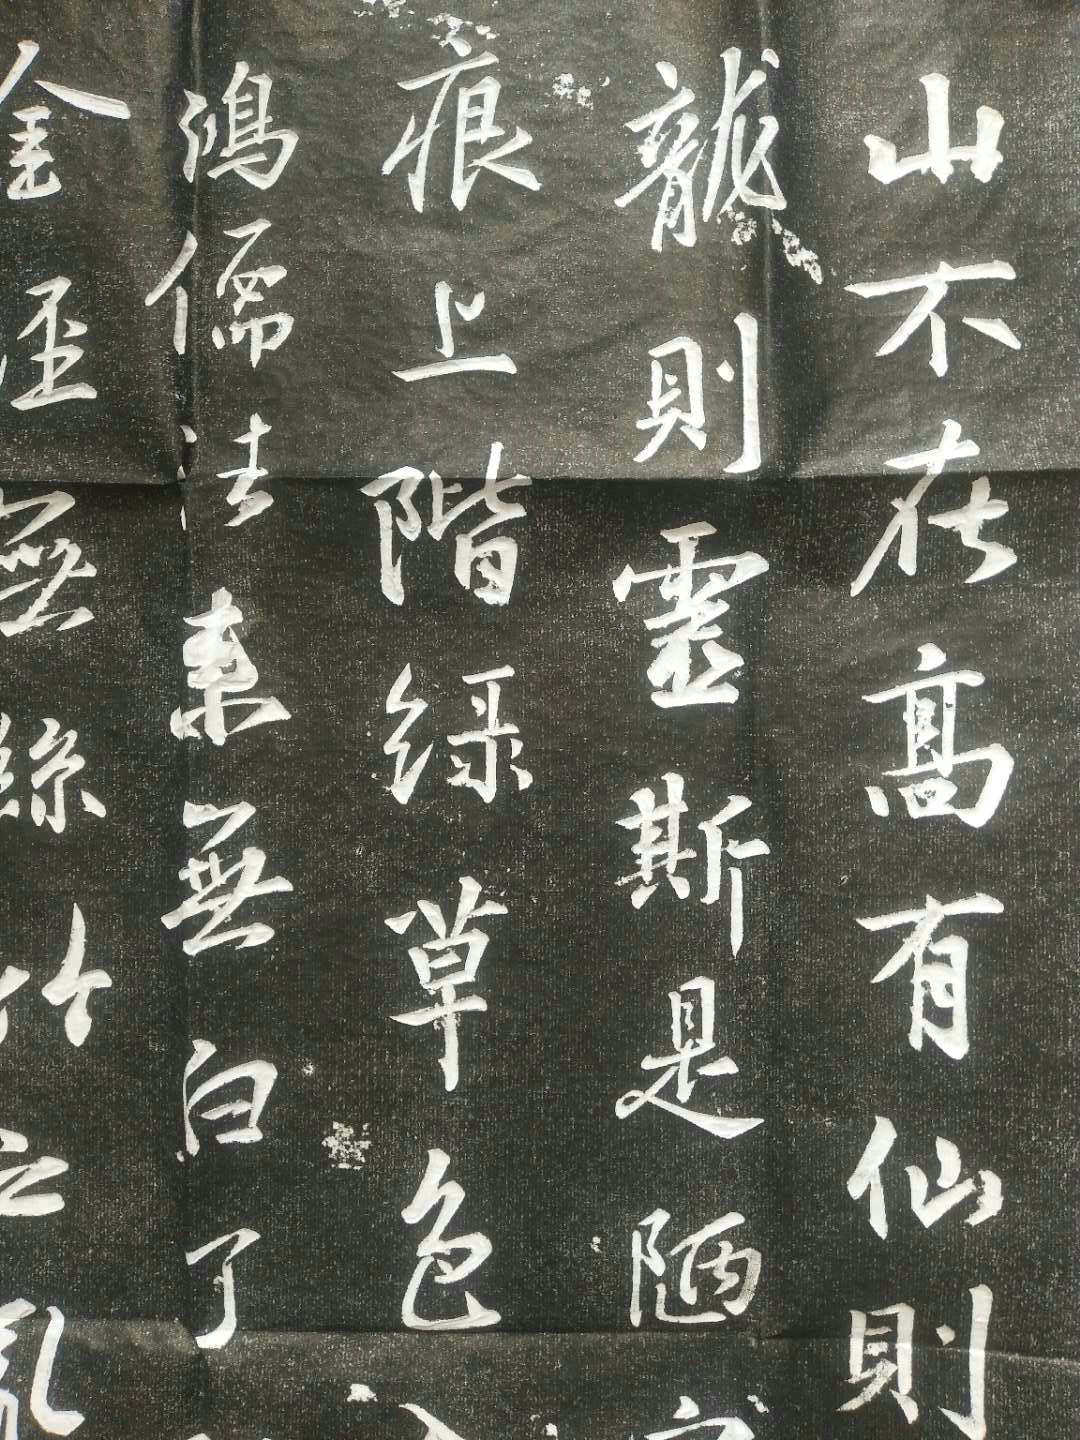 山不在高有仙則
龍則靈斯是陋
痕上階綠草色
鴻儒往來無白丁
金經無絲竹之亂